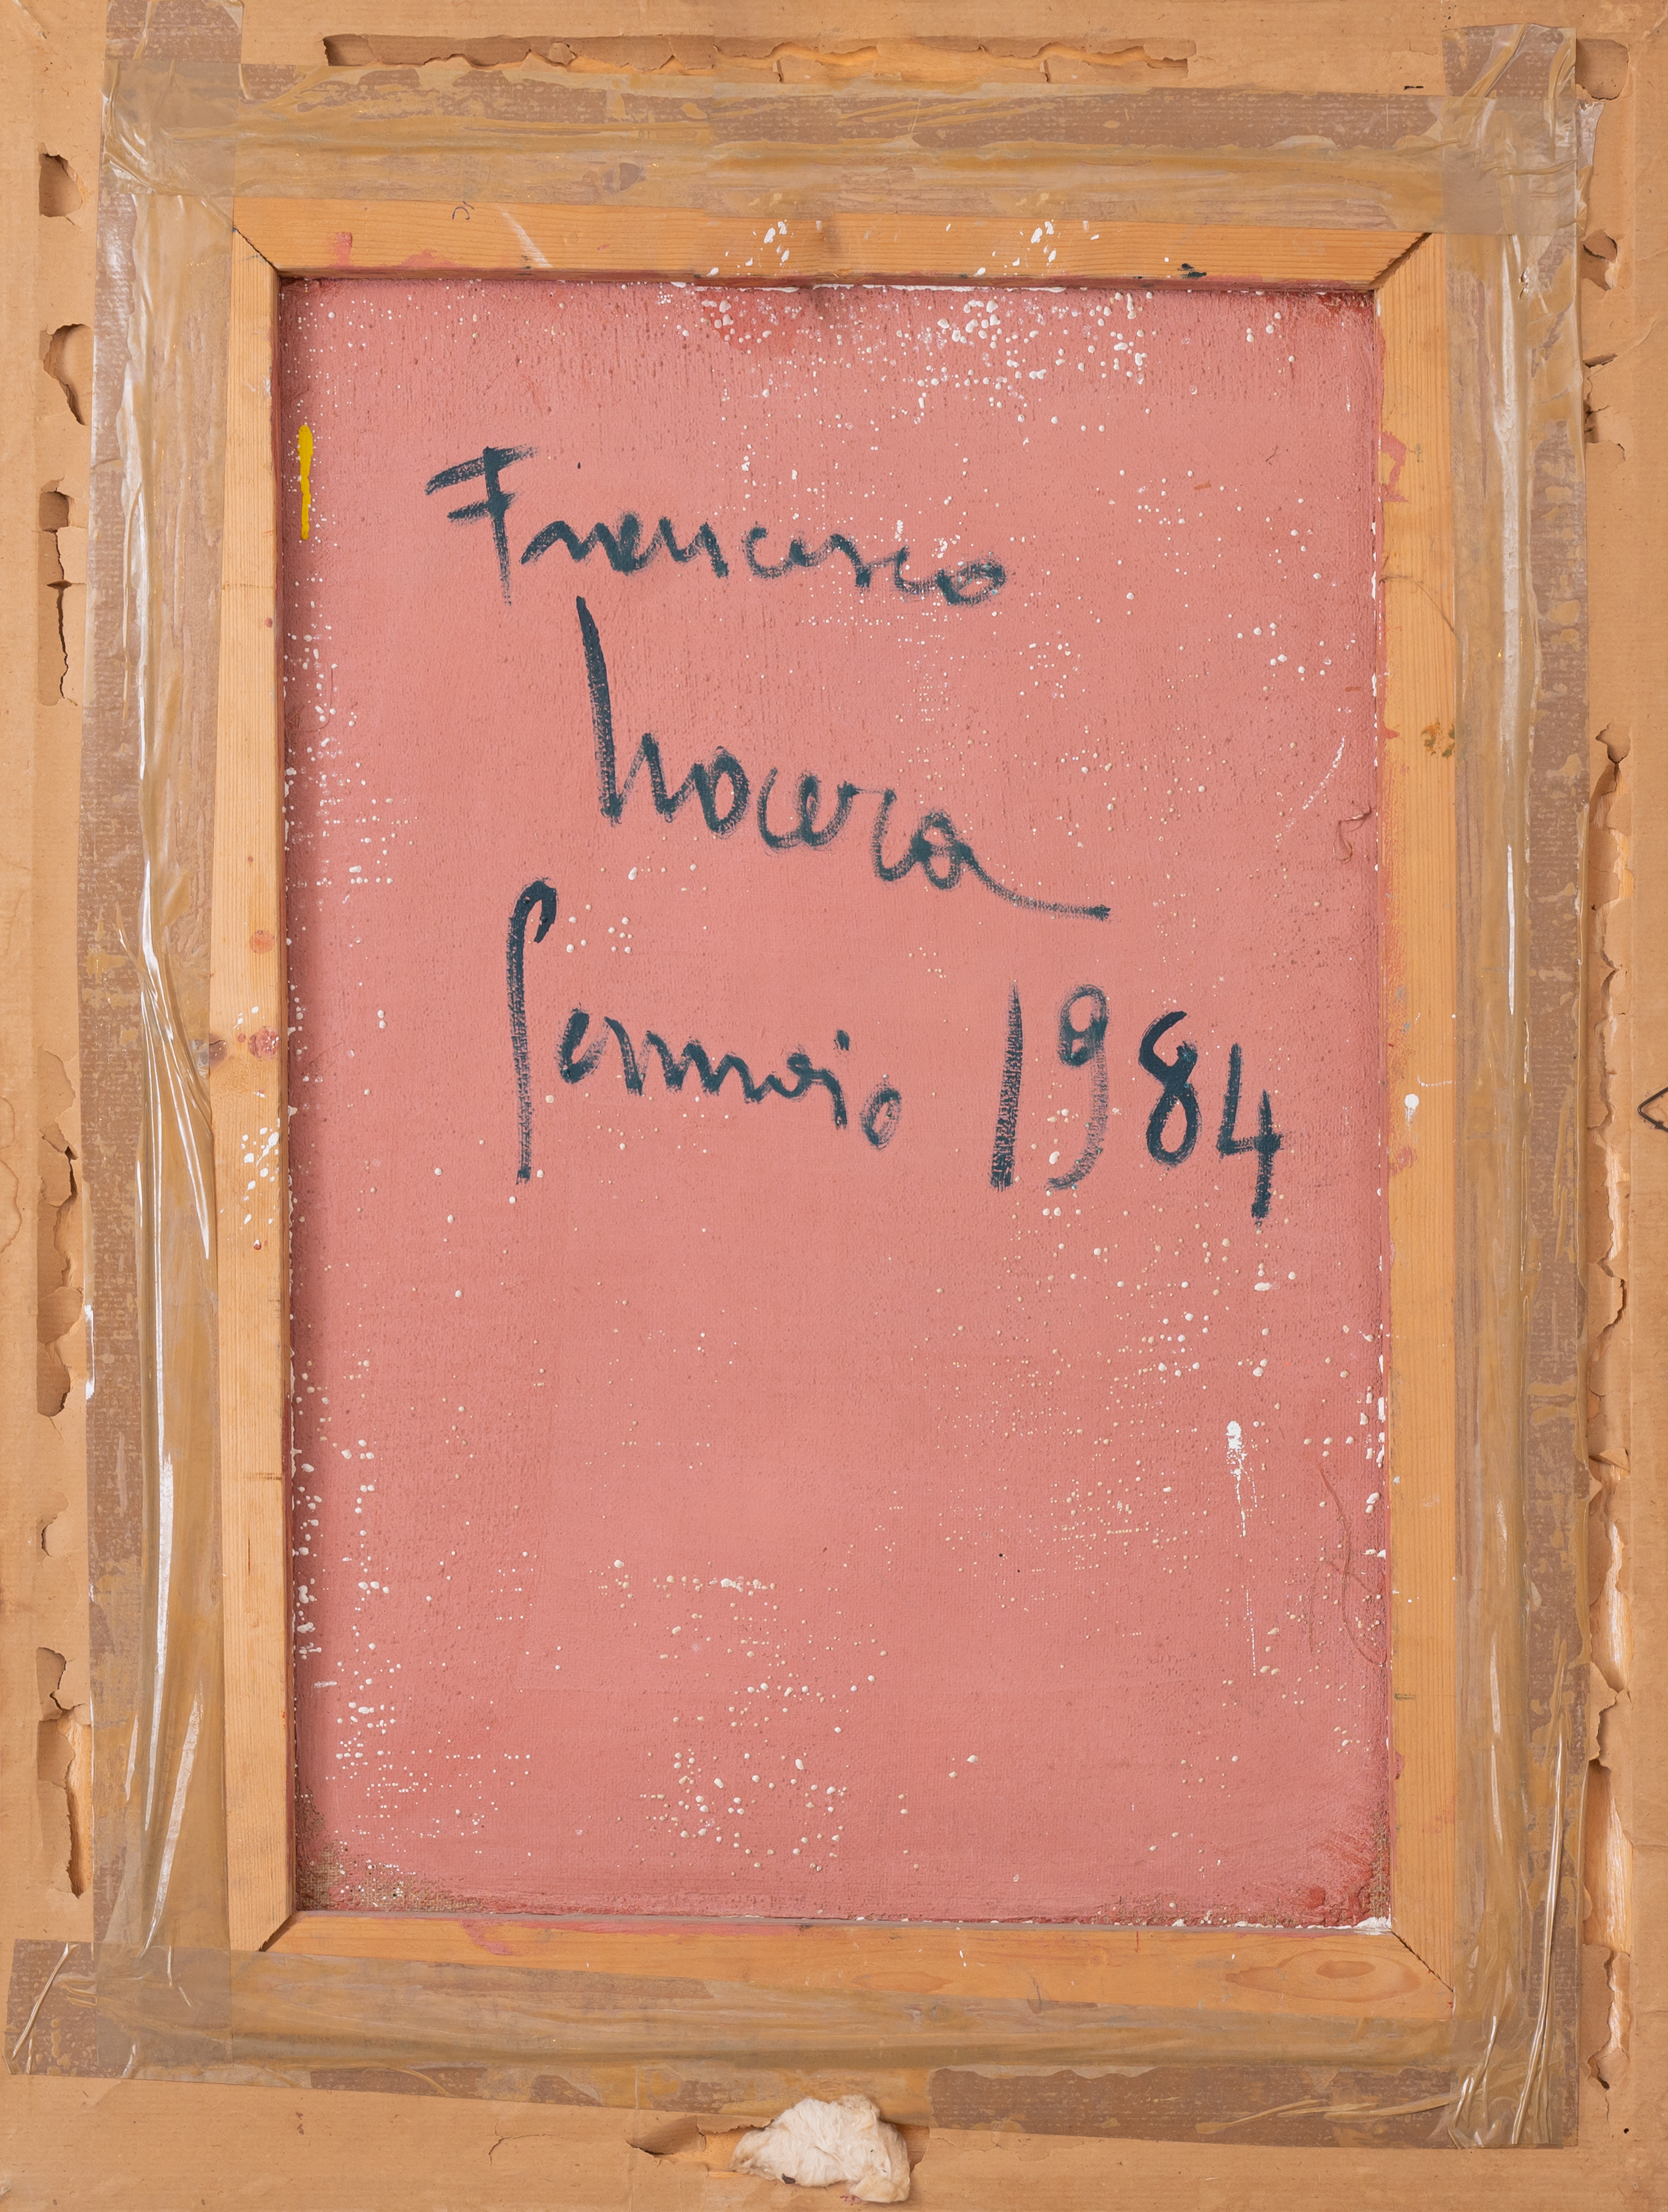 Francesco
Nocera
Gennaio 1984